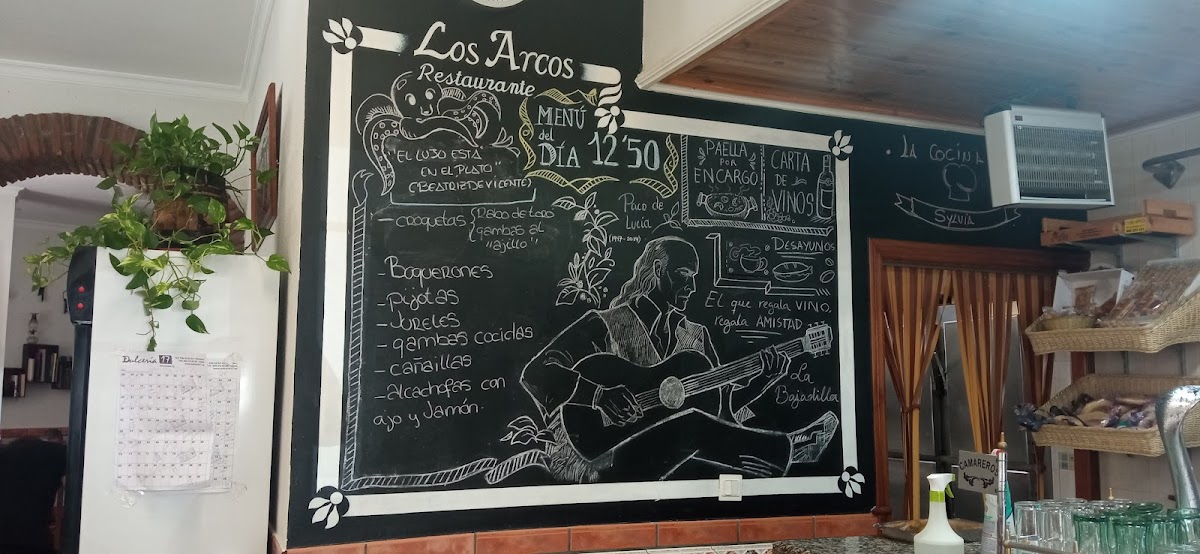 Los Arcos
Restaurante
"EL LUJO ESTA
EN EL PLATO"
(BEATRIZ DE VICENTE)
MENÚ
del
DÍA 12'50
- croquetas { Rabo de toro
gambas al
"ajillo"
- Boquerones
- pijotas
- Jureles
- gambas cocidas
- cañaillas
- alcachofas con
ajo y Jamón.
Paco de
Lucía
PAELLA
POR
ENCARGO
CARTA
DE
VINOS
DESAYUNOS
EL que regala VINO,
regala AMISTAD
La
Bajadilla
LA COCINA
SYLVIA
Dulcería 17
CAMARERO